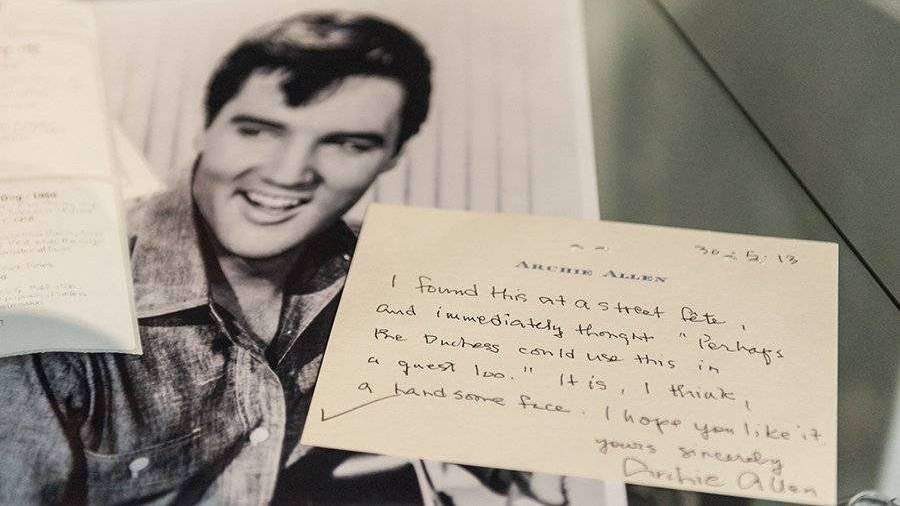 30.5.13
ARCHIE ALLEN
I found this at a street fête,
and immediately thought "Perhaps
the Duchess could use this in
a guest loo." It is, I think,
a handsome face. I hope you like it.
yours sincerely
Archie Allen